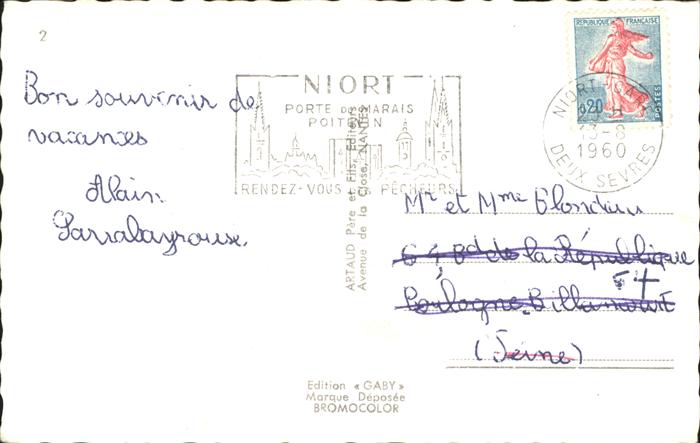 2
Bon souvenir de
vacances
Alain
NIORT
PORTE DU MARAIS
POITEVIN
RENDEZ-VOUS PÊCHEURS
ARTAUD Père et Fils, Editeurs
Avenue de la Close, NANTES
REPUBLIQUE FRANÇAISE
0,20
POSTES
NIORT GARE
13-8
1960
DEUX SEVRES
Mr et Mme Blondeau
de la République
Boulogne-Billancourt
(Seine)
Edition « GABY »
Marque Déposée
BROMOCOLOR